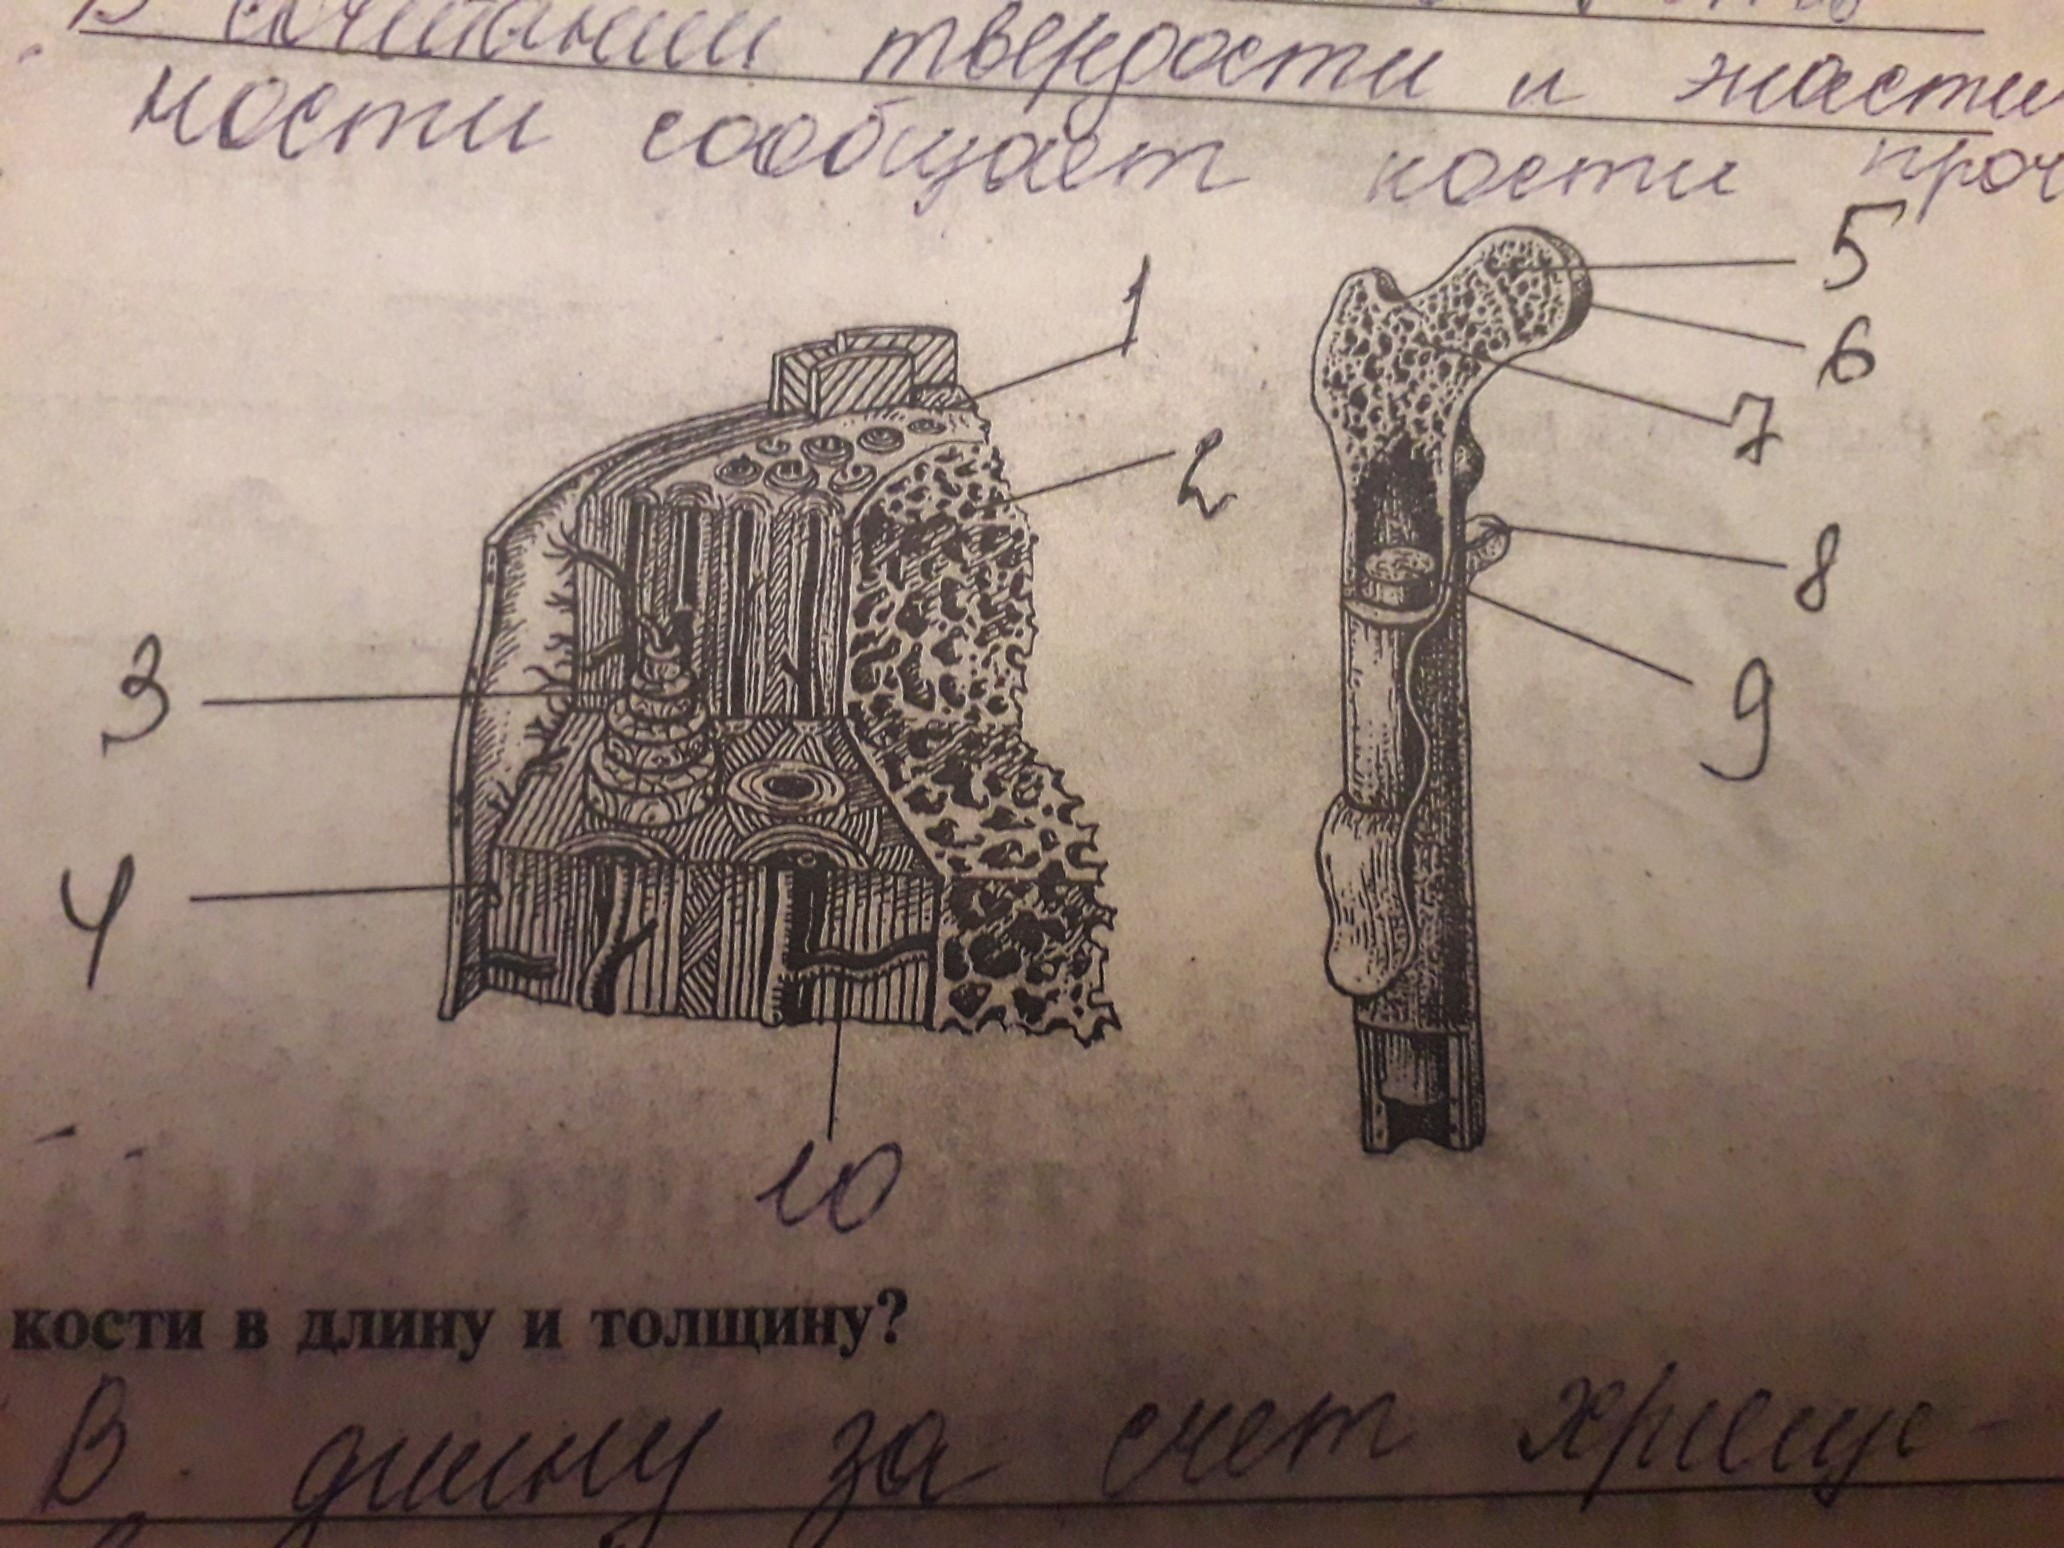 В сочетании твердости и эласти
ности сообщает кости проч
1
5
6
2
7
8
3
9
4
10
кости в длину и толщину?
В длину за счет хряще-